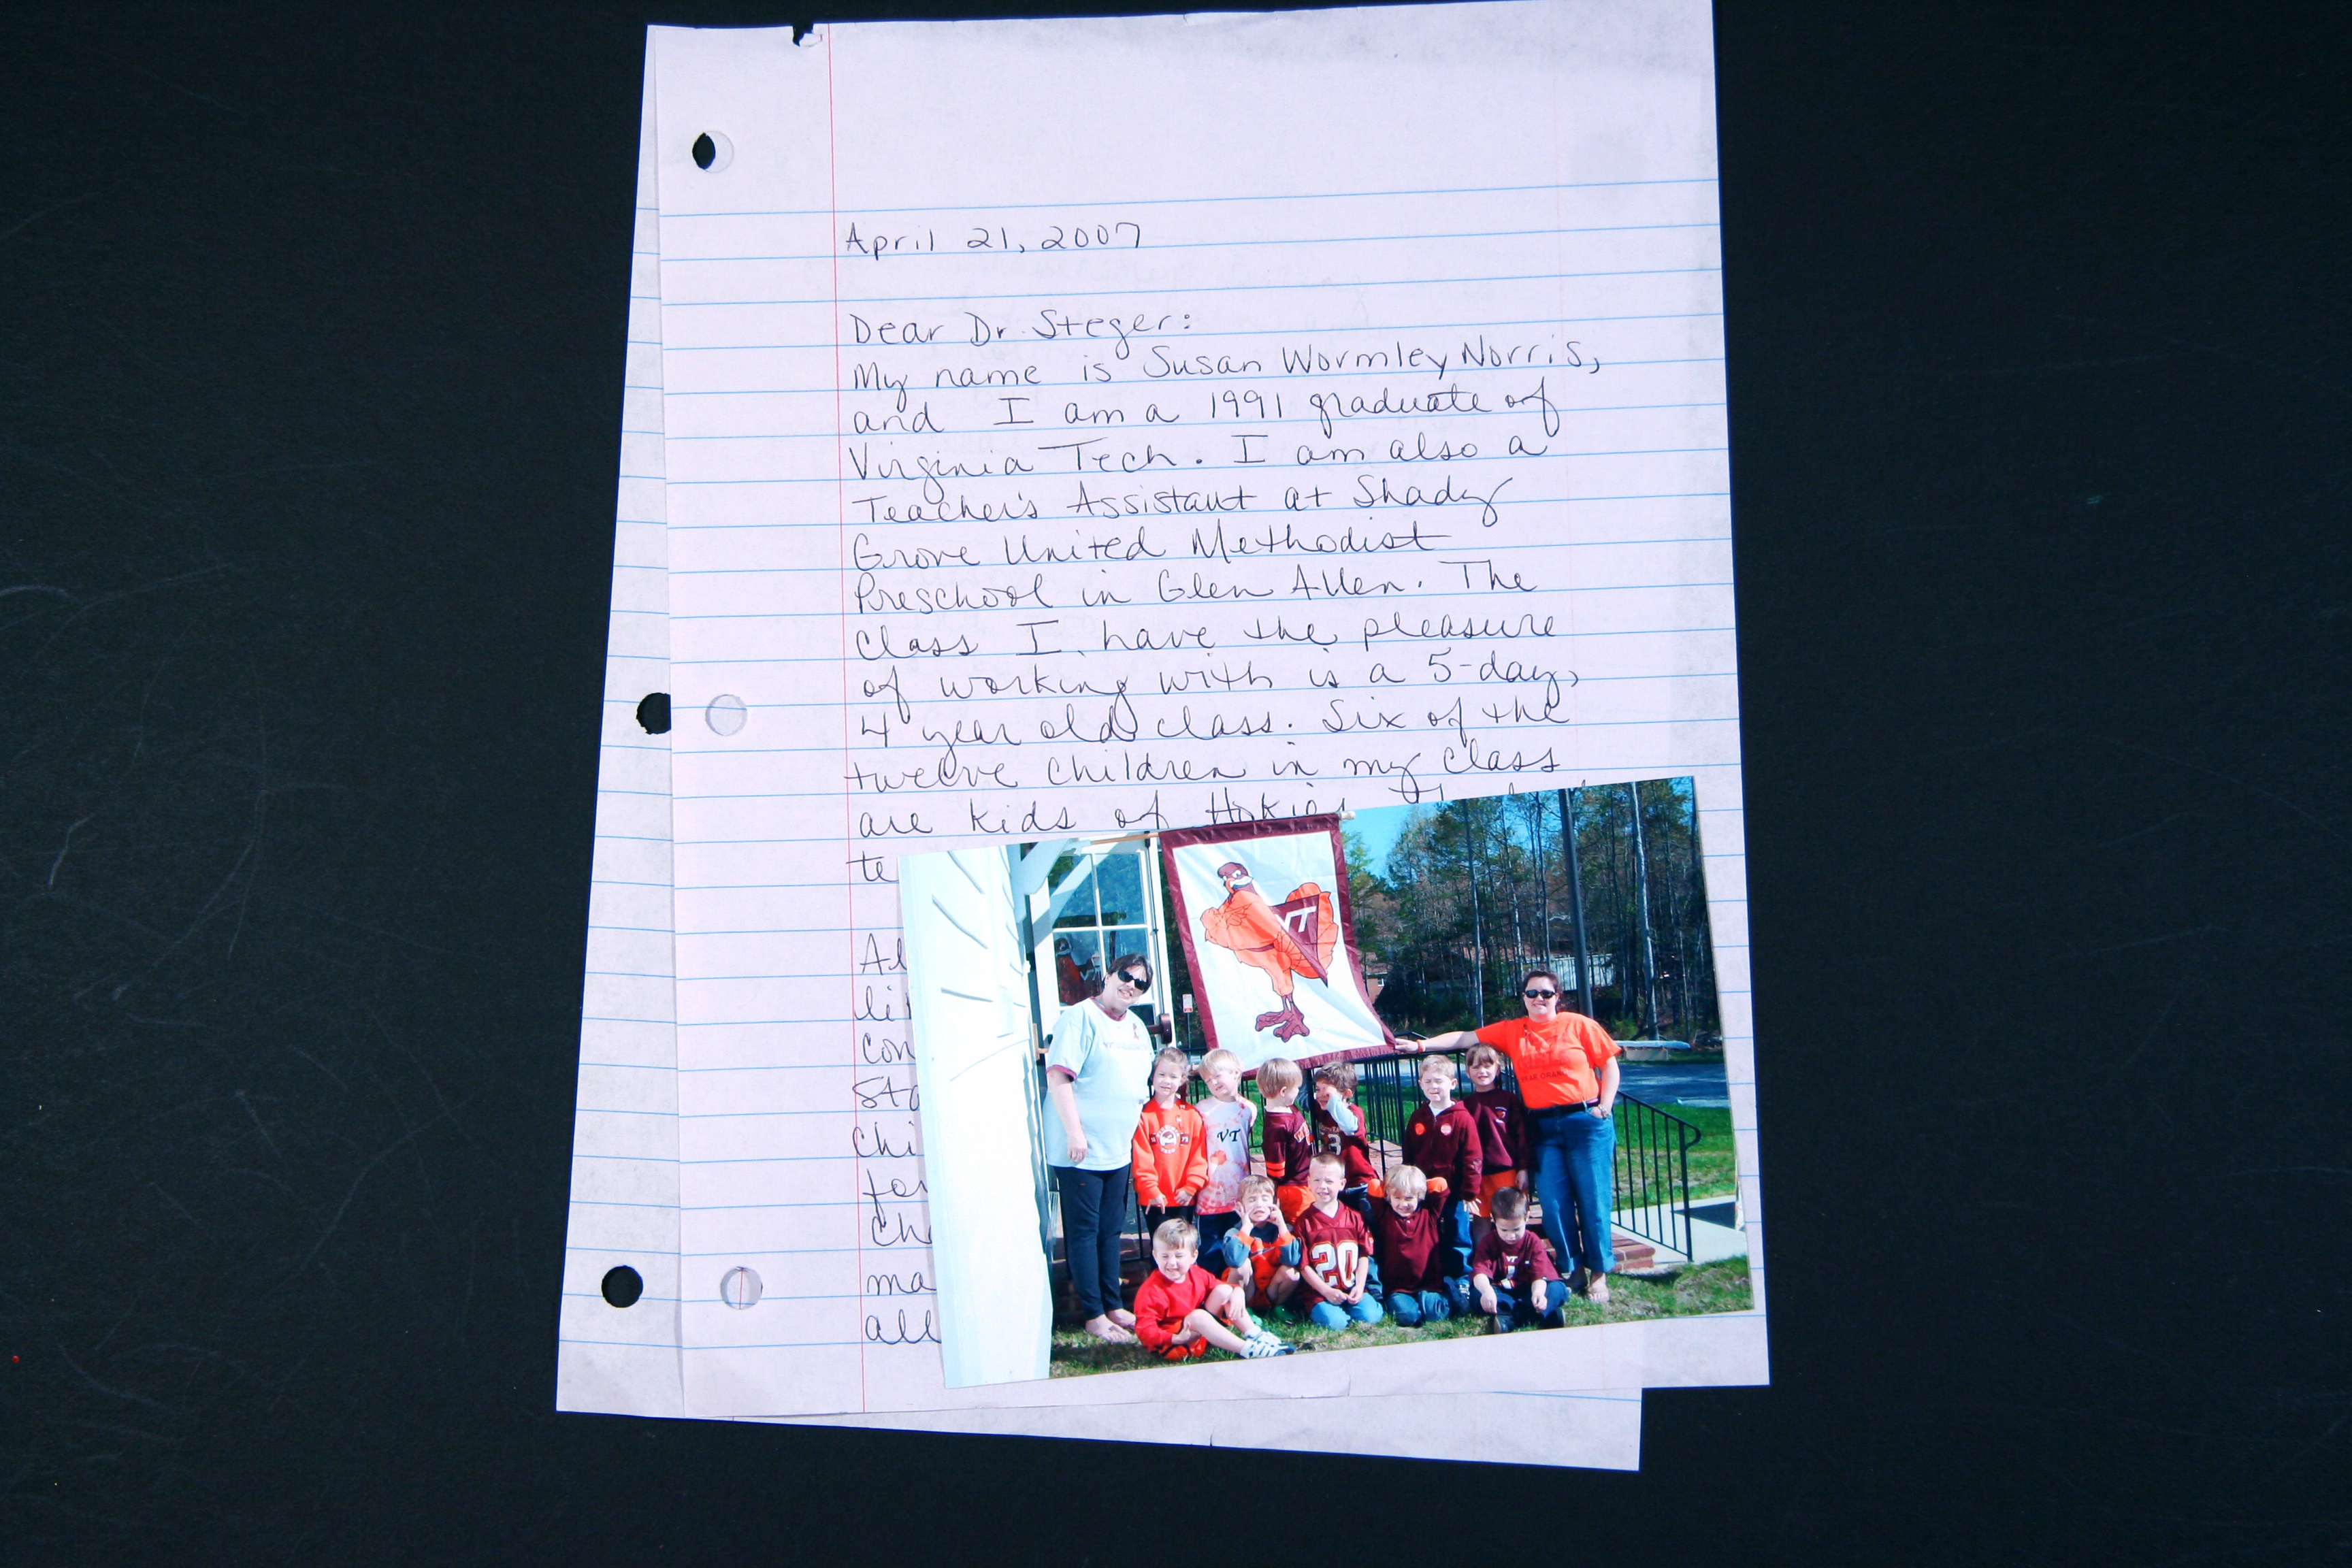 April 21, 2007
Dear Dr. Steger:
My name is Susan Wormley Norris,
and I am a 1991 graduate of
Virginia Tech. I am also a
Teacher's Assistant at Shady
Grove United Methodist
Preschool in Glen Allen. The
class I have the pleasure
of working with is a 5-day,
4 year old class. Six of the
twelve children in my class
are kids of Hokies
te
VT
Al
li
con
VT
sta
3
chi
for
20
che
ma
all